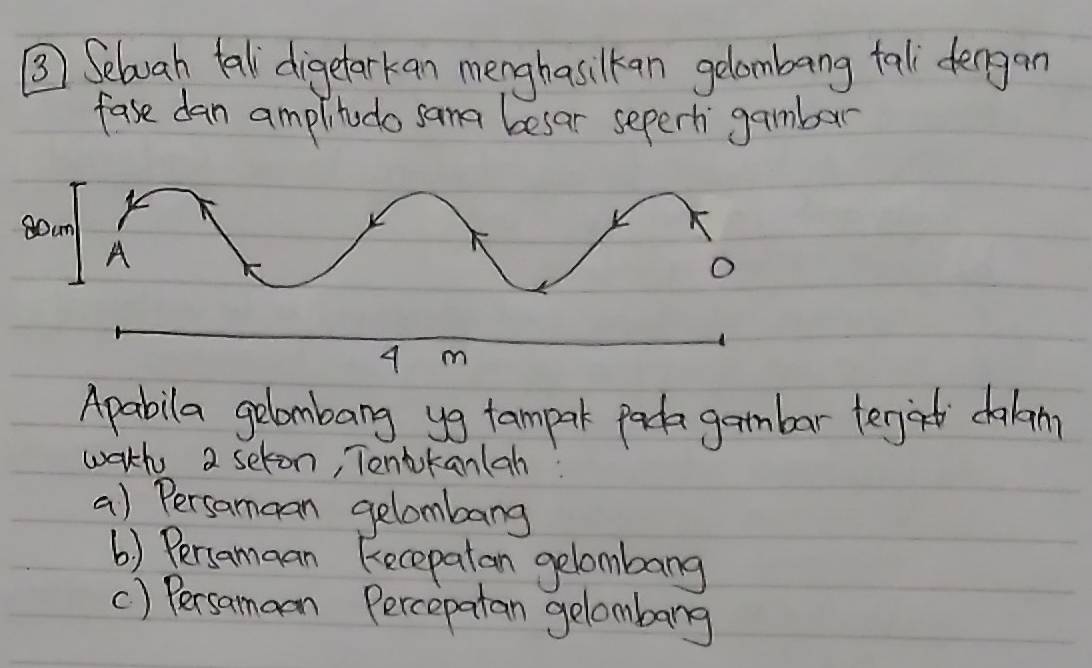 3 Sebuah tali digetarkan menghasilkan gelombang tali dengan
fase dan amplitudo sama besar seperti gambar
80 cm
A
O
4 m
Apabila gelombang yg tampak pada gambar terjadi dalam
waktu 2 sekon, Tentukanlah :
a) Persamaan gelombang
b.) Persamaan kecepatan gelombang
c) Persamaan Percepatan gelombang